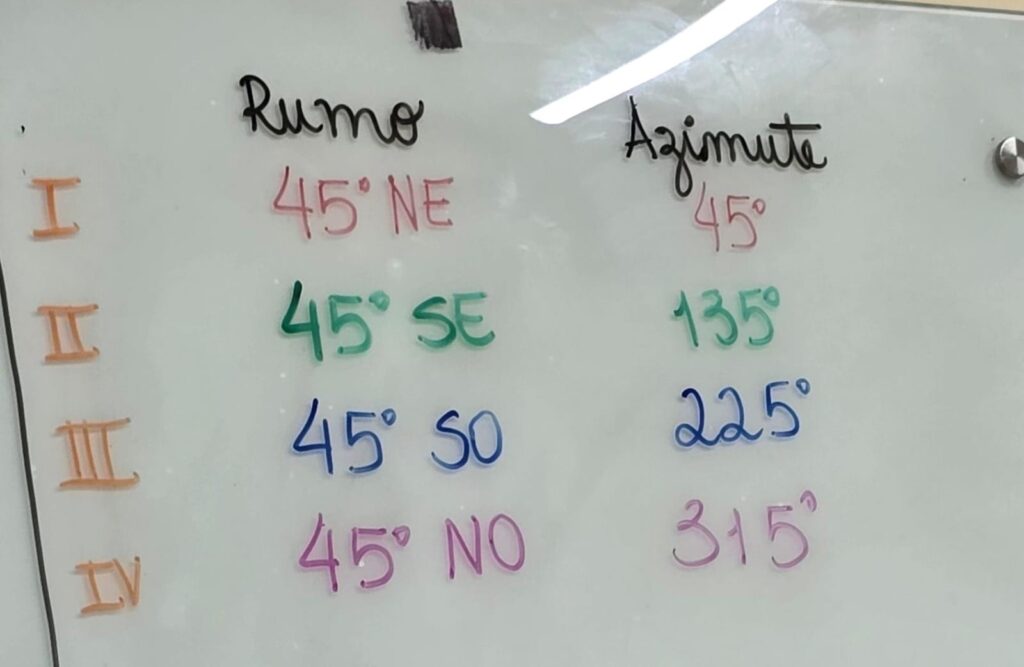 Rumo Azimute
I 45° NE 45°
II 45° SE 135°
III 45° SO 225°
IV 45° NO 315°